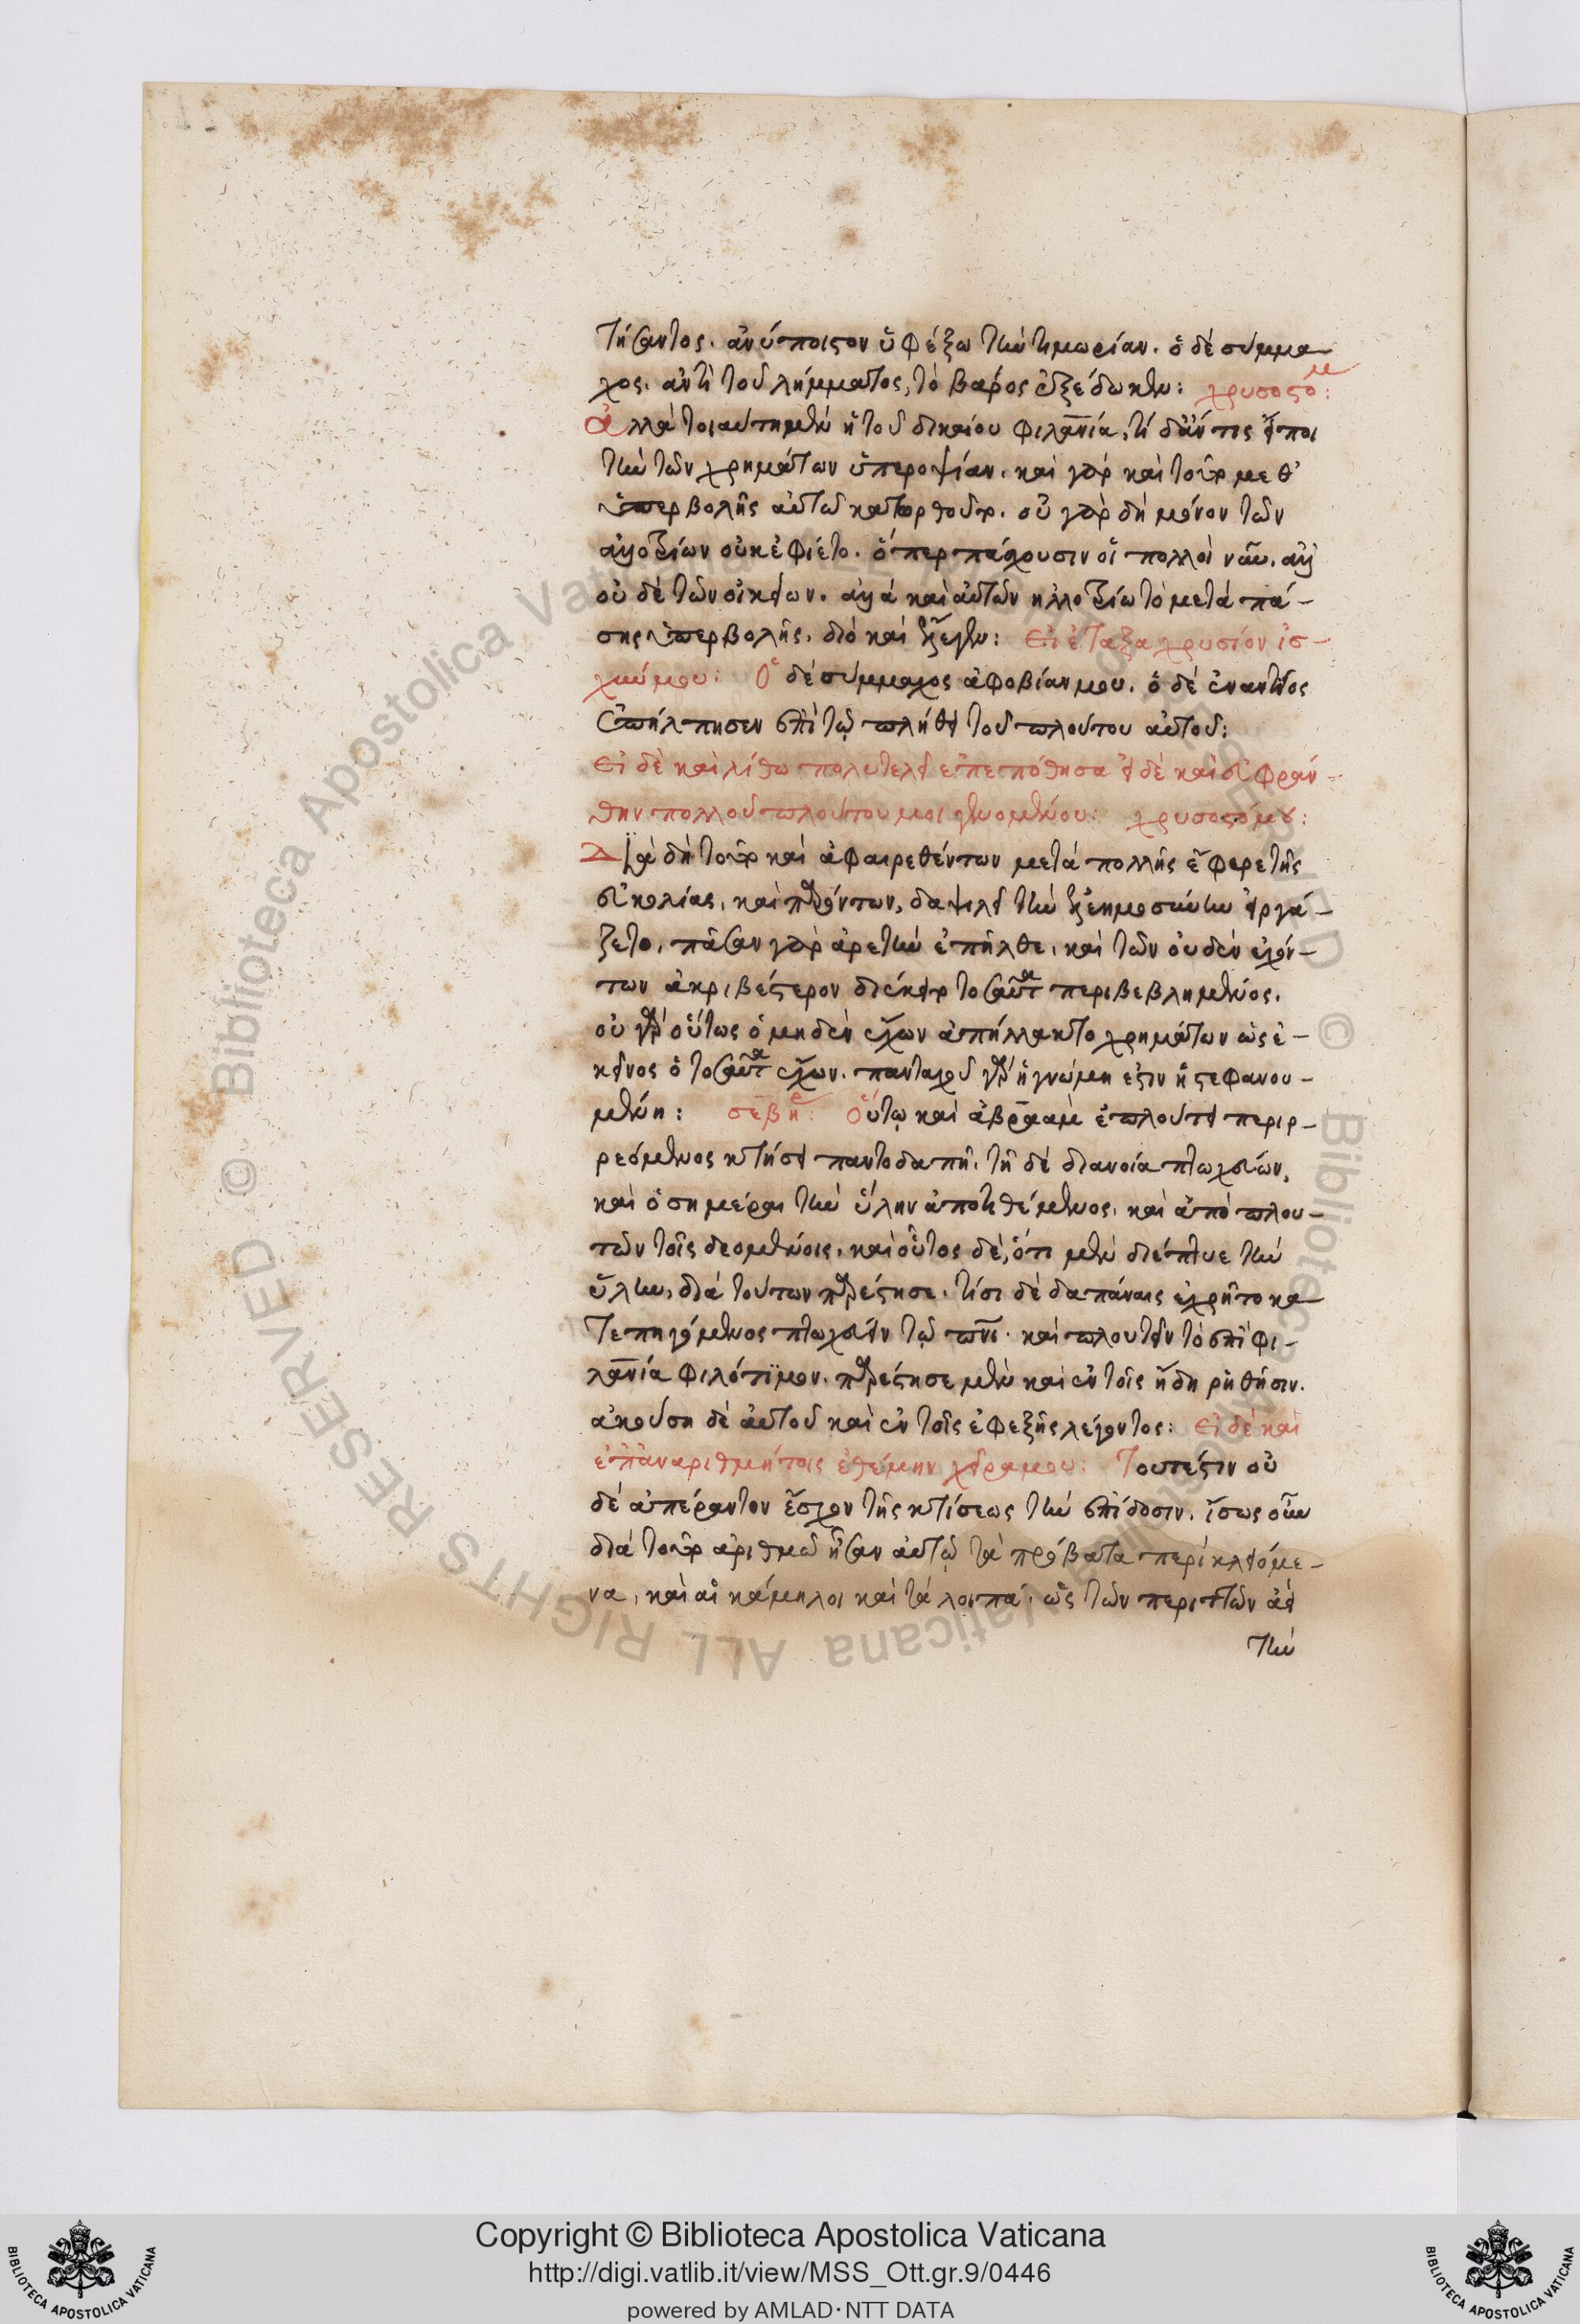 τήσαντος. ἀνύποιστον ὑφέξω τὴν τιμωρίαν. ὁ δὲ σύμμα
χος. ἀντὶ τοῦ λήμματος, τὸ βάρος ἐξέδωκεν: χρυσοστόμ:
ἀλλὰ τοιαύτη μὲν ἡ τοῦ δικαίου φιλανία, τί δ' ἄν τις εἴποι
τὴν τῶν χρημάτων ὑπεροψίαν. καὶ γὰρ καὶ τοῦτο μεθ'
ὑπερβολῆς αὐτῶ κατορθοῦτο. οὐ γὰρ δὴ μόνον τῶν
ἀλλοτρίων οὐκ ἐφίετο. ὅπερ πάσχουσιν οἱ πολλοὶ νῦν. ἀλλ'
οὐδὲ τῶν οἰκείων. ἀλλὰ καὶ αὐτῶν ἠλλοτρίωτο μετὰ πά-
σης ὑπερβολῆς. διὸ καὶ ἔλεγεν: Εἰ ἔταξα χρυσίον ἰσ-
χύν μου: Ὁ δὲ σύμμαχος ἀφοβίαν μου. ὁ δὲ ἐναντίος
ἐπήλπησεν ἐπὶ τῷ πλήθει τοῦ πλούτου αὐτοῦ:
Εἰ δὲ καὶ λίθω πολυτελεῖ ἐπεπόθησα εἰ δὲ καὶ εὐφράν-
θην πολλοῦ πλούτου μοι γενομένου: χρυσοστόμου:
Διὰ δὴ τοῦτο καὶ ἀφαιρεθέντων μετὰ πολλῆς ἔφερε τῆς
εὐκολίας. καὶ παρόντων, δαψιλῆ τὴν ἐλεημοσύνην εἰργά-
ζετο. πᾶσαν γὰρ ἀρετὴν ἐπῆλθε. καὶ τῶν οὐδὲν ἐχόν-
των ἀκριβέστερον διέκειτο τοσαῦτα περιβεβλημένος.
οὐ γὰρ οὕτως ὁ μηδὲν ἔχων ἀπήλλακτο χρημάτων ὡς ἐ-
κεῖνος ὁ τοσαῦτα ἔχων. πανταχοῦ γὰρ ἡ γνώμη ἐστιν ἡ στεφανου-
μένη: σεβη: Οὕτω καὶ ἀβραὰμ ἐπλούτει περιρ-
ρεόμενος κτήσει παντοδαπῆ. τῆ δὲ διανοία πτωχεύων,
καὶ ὁσημέραι τὴν ὕλην ἀποτιθέμενος. καὶ ἀπὸ πλου-
τῶν τοῖς δεομένοις. καὶ οὗτος δὲ, ὅτι μὲν διέπτυε τὴν
ὕλην, διὰ τούτων παρέστησε. τίσι δὲ δαπάναις ἐχρῆτο κα
τεπηγόμενος πτωχεύειν τῷ πνι· καὶ πλουτεῖν τὸ ἐπὶ φι-
λανία φιλότιμον. παρέστησε μὲν καὶ ἐν τοῖς ἤδη ῥηθήσιν.
ἀκούση δὲ αὐτοῦ καὶ ἐν τοῖς ἐφεξῆς λέγοντος: Εἰ δὲ καὶ
ἐπ' ἀναριθμήτοις ἐθέμην χεῖρα μου: Τουτέστιν οὐ
δὲ ἀπέραντον ἔσχον τῆς κτίσεως τὴν ἐπίδοσιν. ἴσως οὖν
διὰ τοῦτο ἀριθμῶ ἦσαν αὐτῷ τὰ πρόβατα περικλειόμε-
να, καὶ αἱ κάμηλοι καὶ τὰ λοιπά. ὡς τῶν περιττῶν ἀεὶ
τὴν
Copyright © Biblioteca Apostolica Vaticana
http://digi.vatlib.it/view/MSS_Ott.gr.9/0446
powered by AMLAD · NTT DATA